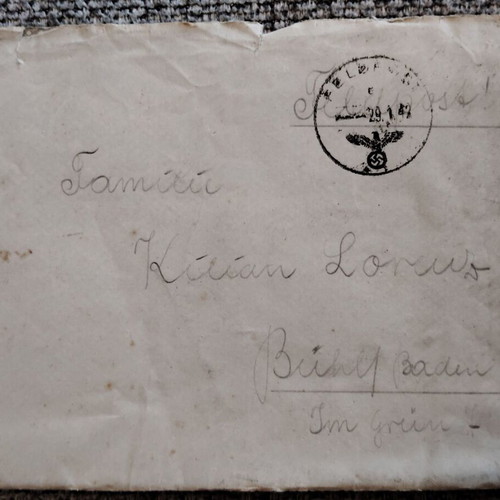 Feldpost!
FELDPOST
c
29.1.42
Familie
Kilian Lorenz
Bühl/Baden
Im Grün